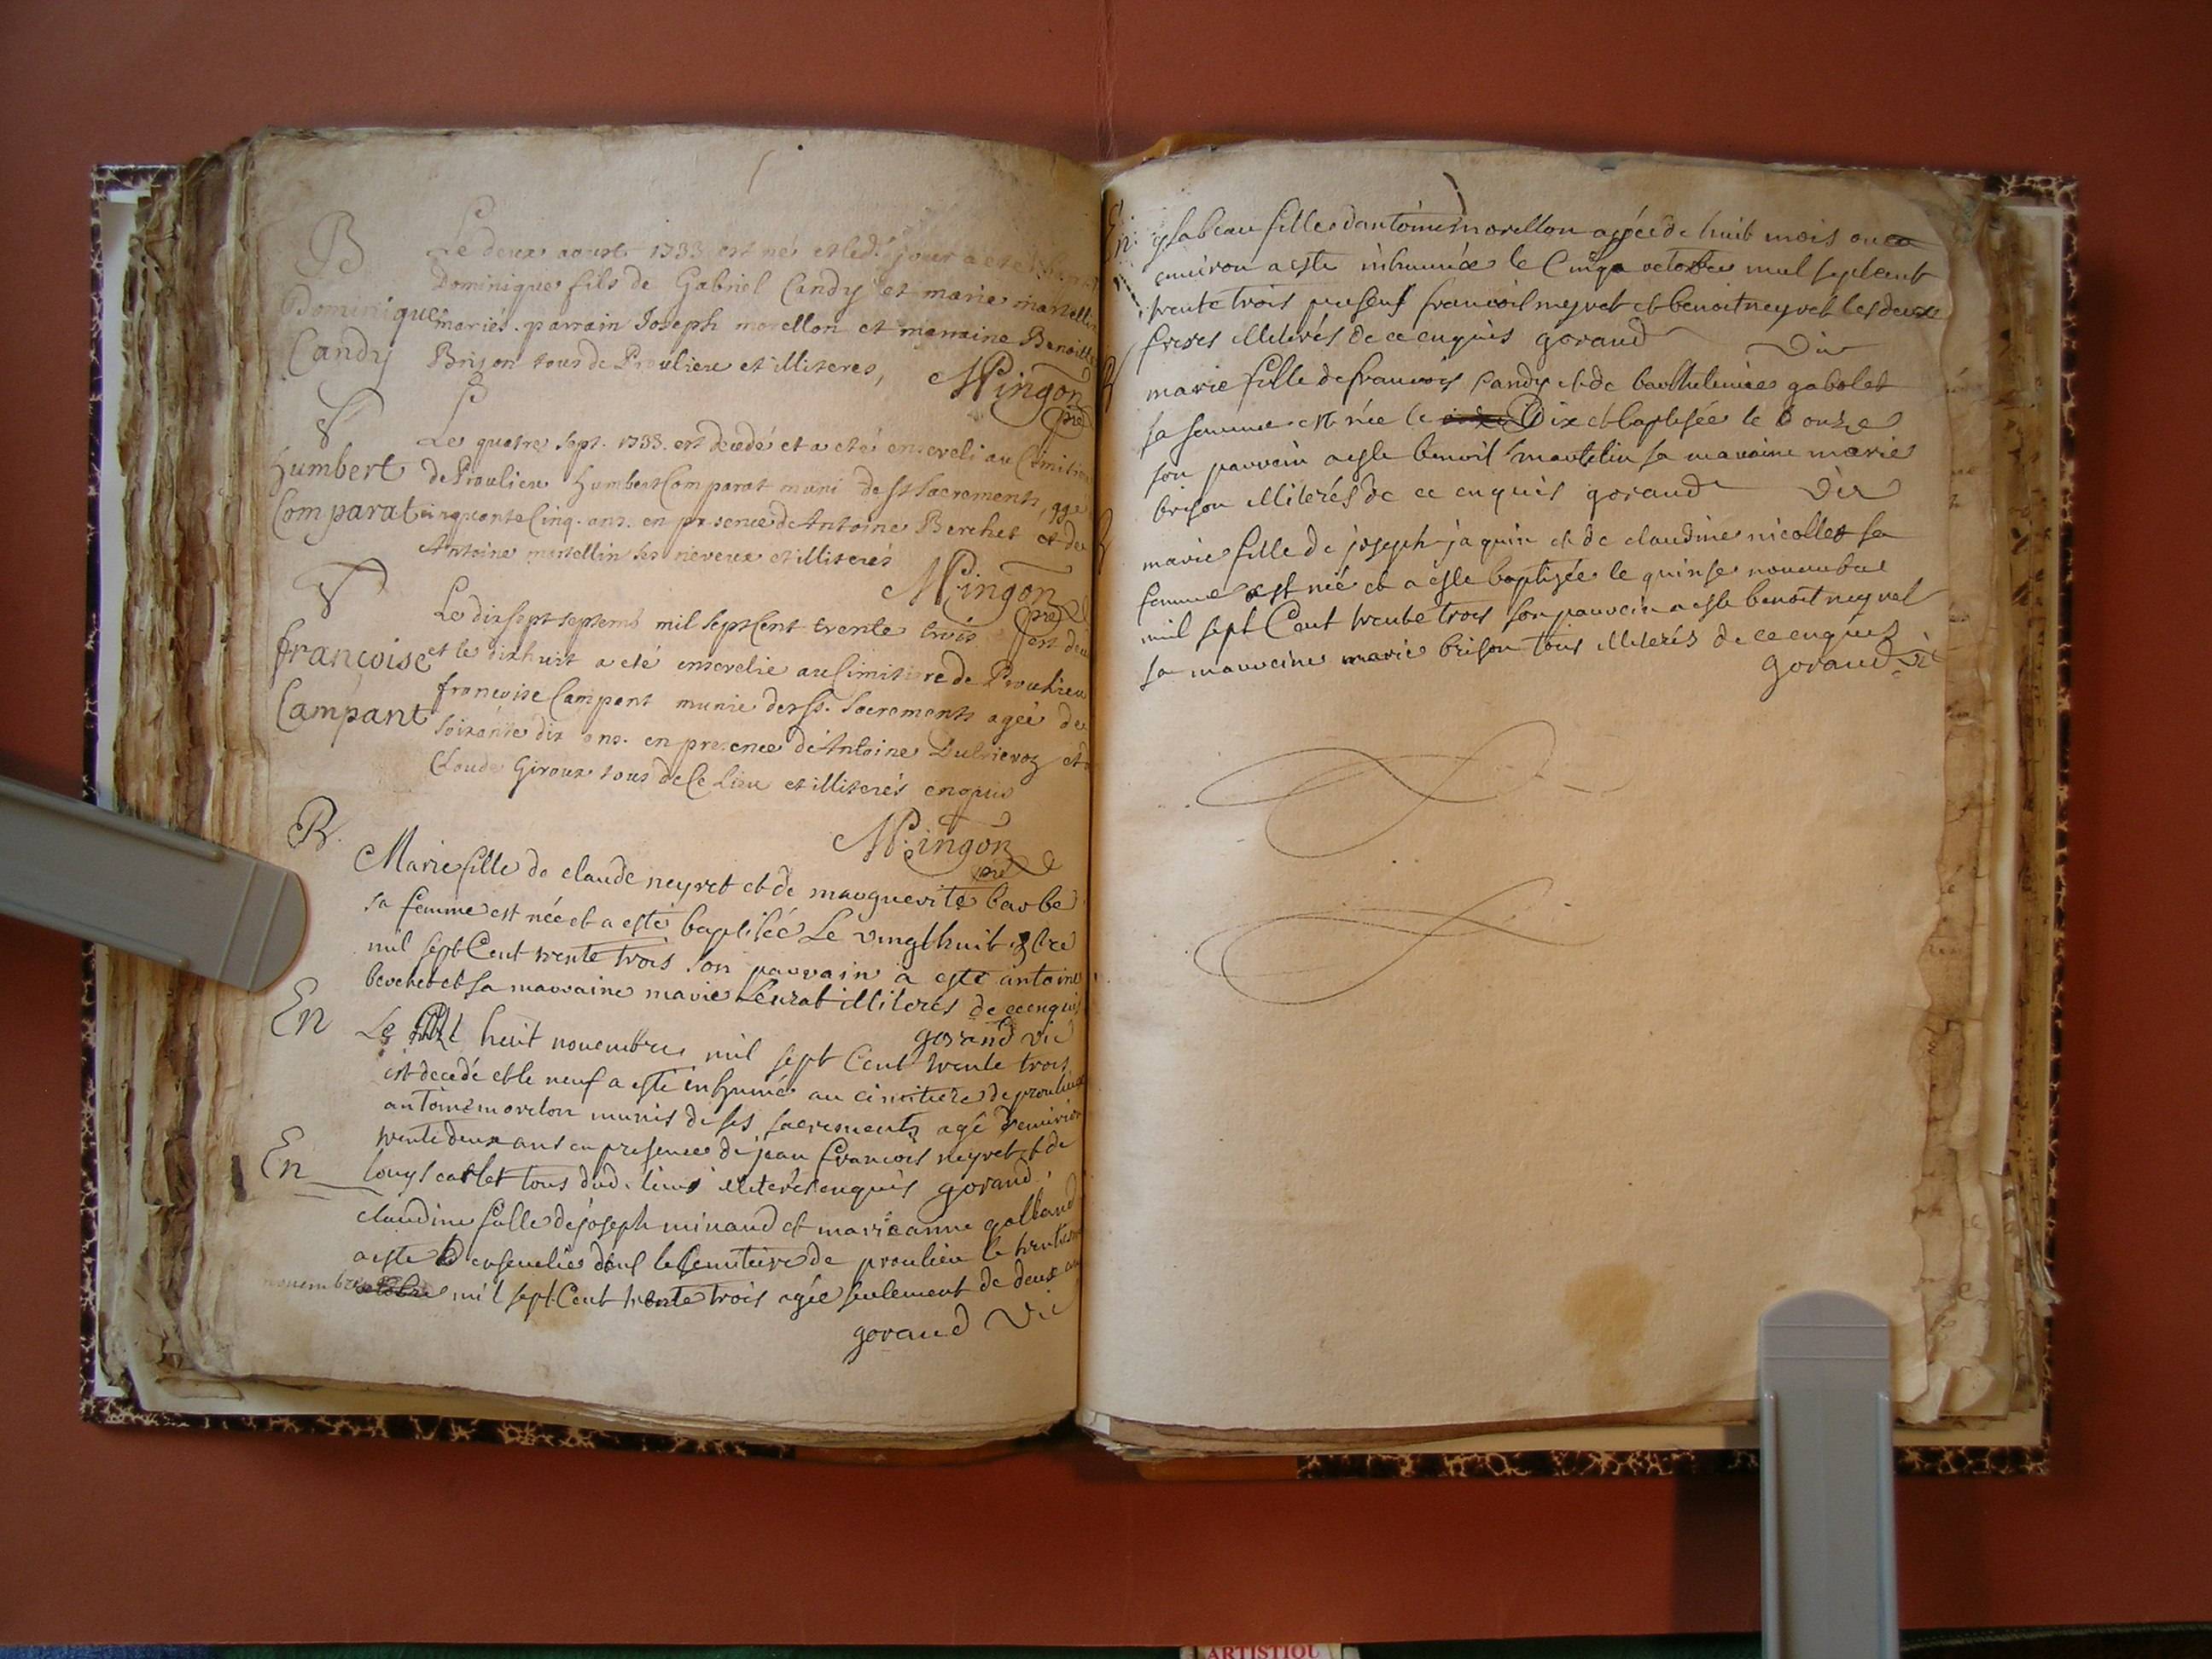 B
Le deux aoust 1733 est né et led. jour a eté
Dominique fils de Gabriel Candy et marie martellin
Dominique mariés. parrain Joseph morellon et marraine Benoitte
Candy Brison tous de Proulieu et illiteres,
Mingon
pre
S
Le quatre sept. 1733. est decedé et a eté enseveli au Cimitiere
Humbert de Proulieu Humbert Comparat muni de st Sacrements, agé
Comparat cinquante Cinq. ans. en presence de Antoine Berchet et de
Antoine martellin ses neveux et illiterés
Mingon
pre
S
Le dix sept septemb mil sept Cent trente trois est
françoise et le dixhuit a eté ensevelie au Cimitiere de Proulieu
françoise Campant munie des st. Sacrements ageé de
Campant soixante dix ans. en presence de Antoine Dubrievoz et
Claude Giroux tous de Ce Lieu et illiterés enquis
Mingon
pre
B.
Marie fille de claude neyret et de marguerite barbe
sa femme est née et a esté baptisée Le vingt huit 8bre
mil sept Cent trente trois son parrain a esté antoine
berchet et sa marraine marie Leurat illiterés de ce enquis
gorand vic
En Le huit novembre mil sept Cent trente trois
est decedé et le neuf a esté inhumé au cimitiere de proulieu
antoine morelon munis de ses sacrements agé d'environ
trente deux ans en presence de jean francois neyret et de
En louys carlet tous dud. lieu illiterés enquis gorand
claudine fille de joseph minaud et marie anne galland
a esté ensevelie dans le Cemitiere de proulieu le trentieme
novembre mil sept Cent trente trois agée seulement de deux ans
gorand Vic
En ysabeau fille d'antoine morellon agée de huit mois ou
environ a esté inhumée le Cinq octobre mil sept cent
trente trois presens francois neyret et benoit neyret les deux
freres illiterés de ce enquis gorand Vic
B
marie fille de francois Candy et de barthelemiee gabolet
sa femme est née le Dix et baptisée le douze
son parrain a esté benoit martelin sa maraine marie
brison illiterés de ce enquis gorand vic
B
marie fille de joseph jaquin et de claudine nicollet sa
femme est née et a esté baptisée le quinse novembre
mil sept Cent trente trois son parrain a esté benoit neyret
sa marraine marie brison tous illiterés de ce enquis
gorand vic
ARTISTIQU